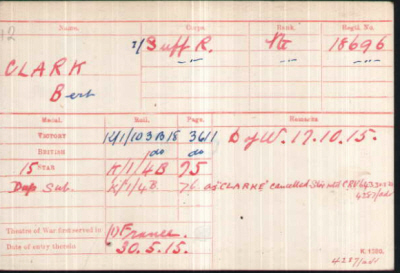 Name. Corps. Rank. Regtl. No.
1/Suff R. Pte 18696
CLARK
Bert
Medal. Roll. Page. Remarks
VICTORY K/1/103B18 3611 D of W. 17.10.15.
BRITISH do do
15 STAR K/1/4B 75
Dup Sub. K/1/4B 76 as "CLARKE" cancelled
4287/adt
Theatre of War first served in (1) France.
Date of entry therein 30.5.15.
K. 1380.